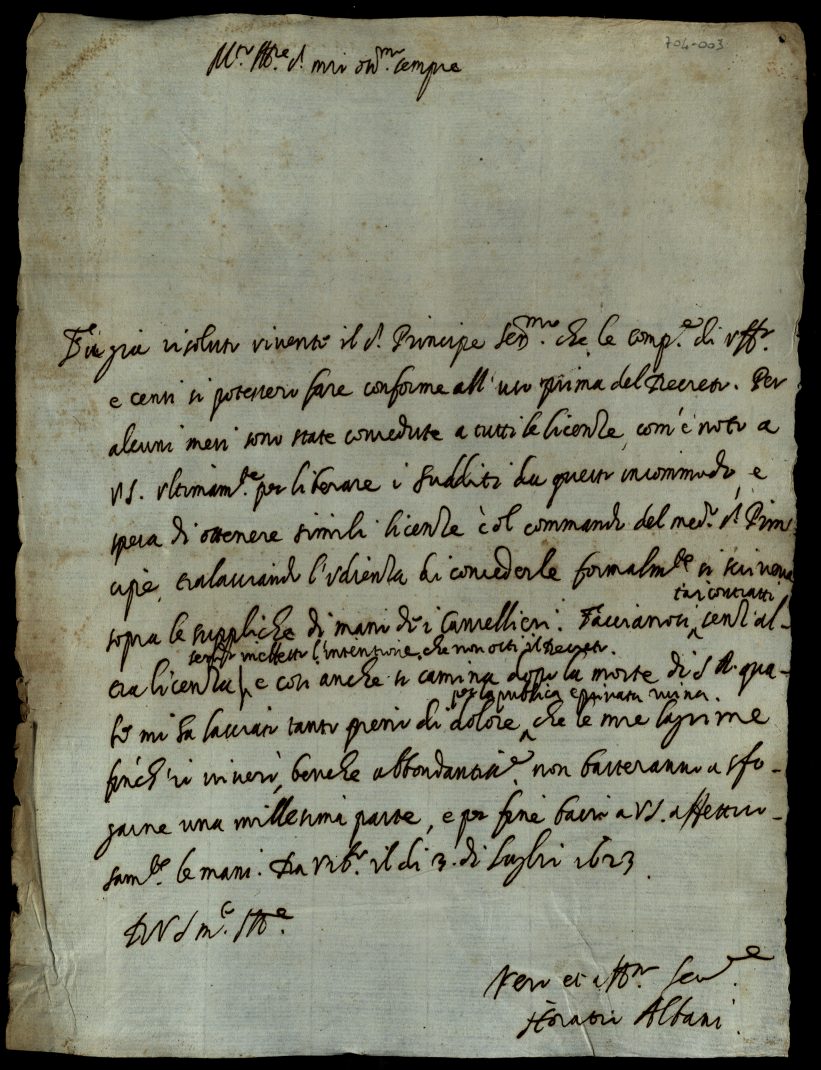 704-003
sempre
Fù già risoluto vivente il S.r Principe Ser.mo che le comp.e di uff.o
e censi si potessero fare conforme all' uso prima del Decreto. Per
alcuni mesi sono state concedute a tutti le licenze, com' è noto a
VS. Ultimam.te per liberare i sudditi da questo incommodo, e
spesa di ottenere simili licenze col commando del med.o S.r Prin-
cipe, tralasciando l'Udienza di concederle formalm.te si scriveva
tai contratti
sopra le suppliche di mani de i Cancellieri. Faccianosi, senz' al-
mettesse l'intenzione, che non osti il Decreto.
tra licenza, e così anche si camina dopo la morte di S.A. qua-
per la publica e privata ruina.
le mi ha lasciato tanto pieno di dolore, che le mie lagrime
finch' io viverò, benche abbondantiss.e non basteranno a sfo-
garne una millesima parte, e per fine bacio a VS. affettuo-
sam.te le mani. Da Urb.o il di 3. di Luglio 1623.
D V S m.to Ill.e
Vero et aff.mo Ser.re
Horatio Albani.